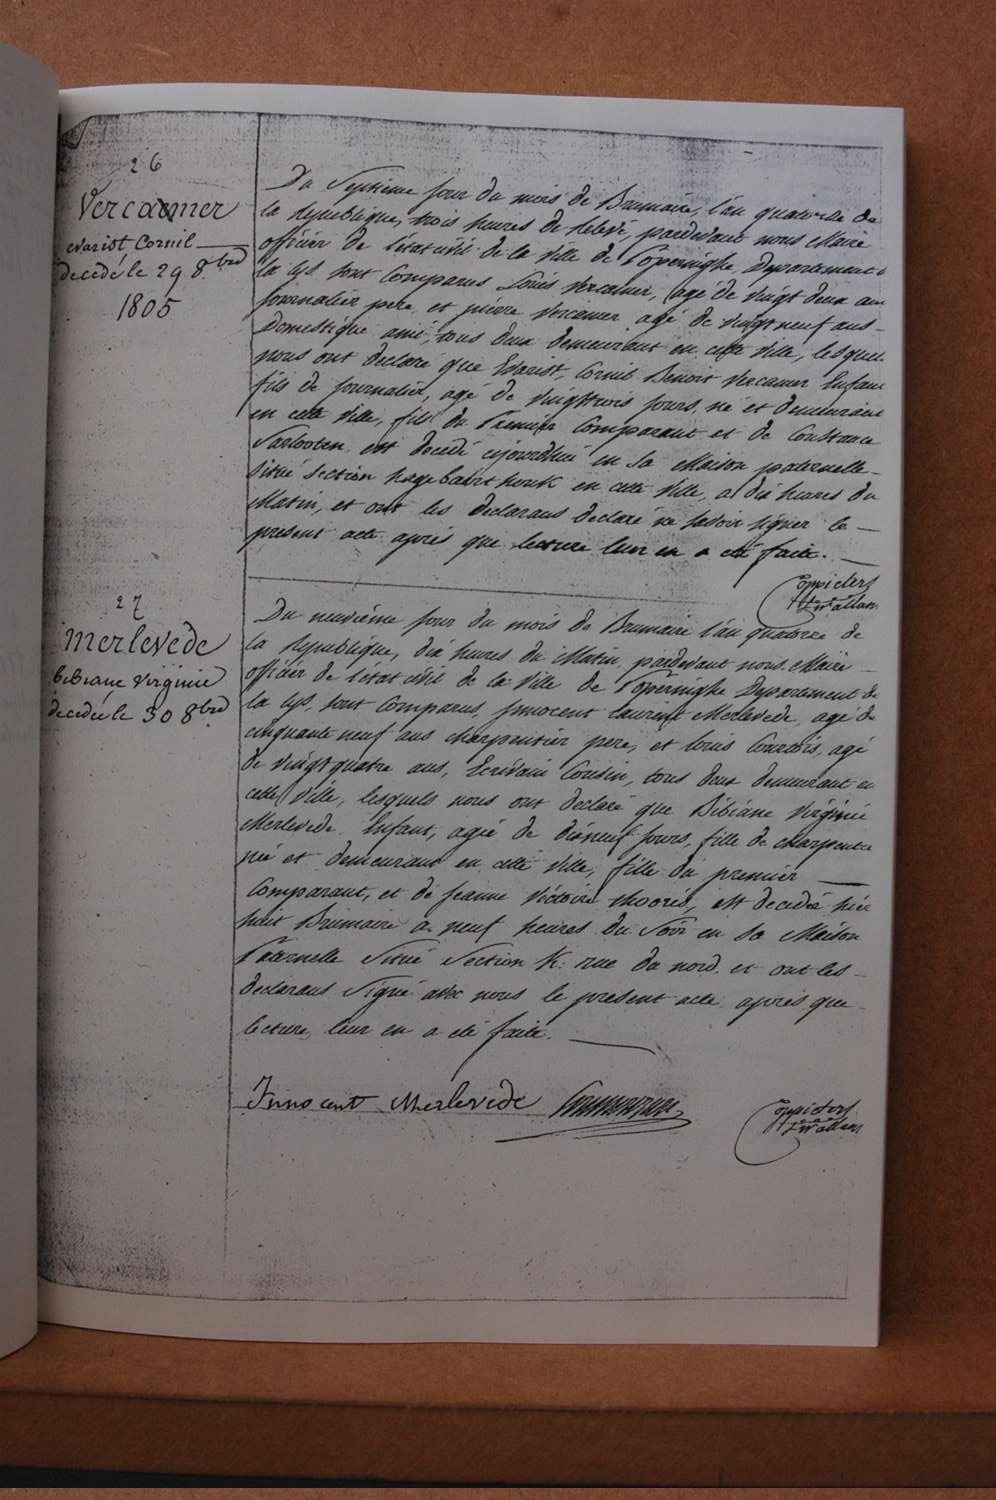 26
Vercamer
evarist Cornil
decedé le 29 8bre
1805
Du Septième jour du mois de Brumaire, l'an quatorze de
la Republique, trois heures de relevé, pardevant nous Maire
officier de l'état civil de la Ville de Poperinghe Departement de
la Lys, sont Comparus Louis Vercamer, agé de vingt deux ans
journalier pere, et pierre Vercamer agé de vingt neuf ans
Domestique ami, tous deux demeurant en cette Ville, lesquels
nous ont declaré que Evarist, Cornil Benoit Vercamer Enfant
fils de journalier, agé de vingttrois jours, né et demeurant
en cette Ville, fils du Premier Comparant et de Constance
est decedé cejourdhui en sa Maison paternelle
situé section en cette Ville, a dix heures du
Matin, et ont les declarans declaré ne savoir signer le
present acte après que lecture leur en a été faite.
27
Merlevede
bibiane Virginie
decidée le 30 8bre
Du neuvième jour du mois de Brumaire l'an quatorze de
la Republique, dix heures du Matin, pardevant nous Maire
officier de l'état civil de la Ville de Poperinghe Departement de
la Lys, sont Comparus, Innocent Laurent Merlevede, agé de
cinquante neuf ans charpentier pere, et Louis Courtois, agé
de vingt quatre ans, Ecrivain Cousin, tous deux demeurant en
cette Ville, lesquels nous ont declaré que Bibiane Virginie
Merlevede Enfant, agée de dixneuf jours, fille de charpentier
née et demeurant en cette Ville, fille du premier
Comparant, et de Jeanne Victoire Moores, est decedée hier
huit Brumaire a neuf heures du Soir en sa Maison
Paternelle Situé Section K: rue du nord, et ont les
declarans Signé avec nous le present acte après que
lecture leur en a été faite.
Innocent Merlevede